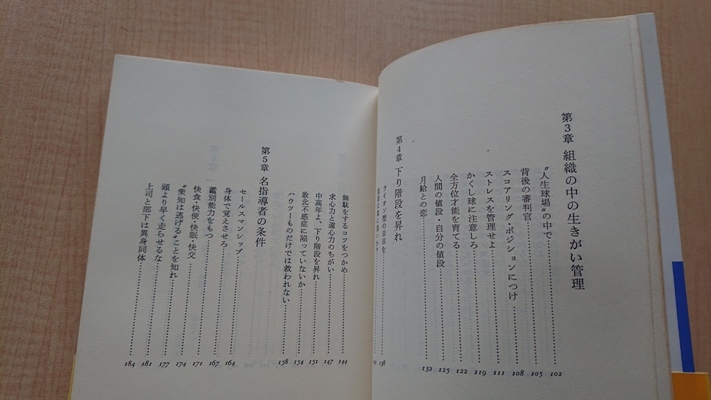 第3章 組織の中の生きがい管理
"人生球場"の中で 102
背後の審判官 105
スコアリング・ポジションにつけ 108
ストレスを管理せよ 111
かくし球に注意しろ 119
全方位才能を育てる 122
人間の値段・自分の値段 125
月給との恋 132
第4章 下り階段を昇れ
138
無駄をするコツをつかめ 144
求心力と遠心力のちがい 147
中高年よ、下り階段を昇れ 151
敗北不感症に陥っていないか 154
ハウツーものだけでは救われない 158
第5章 名指導者の条件
セールスマンシップ 164
身体で覚えさせろ 167
鑑別能力をもつ 171
快食・快便・快眠・快交 174
"衆知は逃げる"ことを知れ 177
頭より早く走らせるな 181
上司と部下は異身同体 184